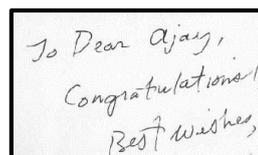 To Dear Ajay,
Congratulations!
Best Wishes,